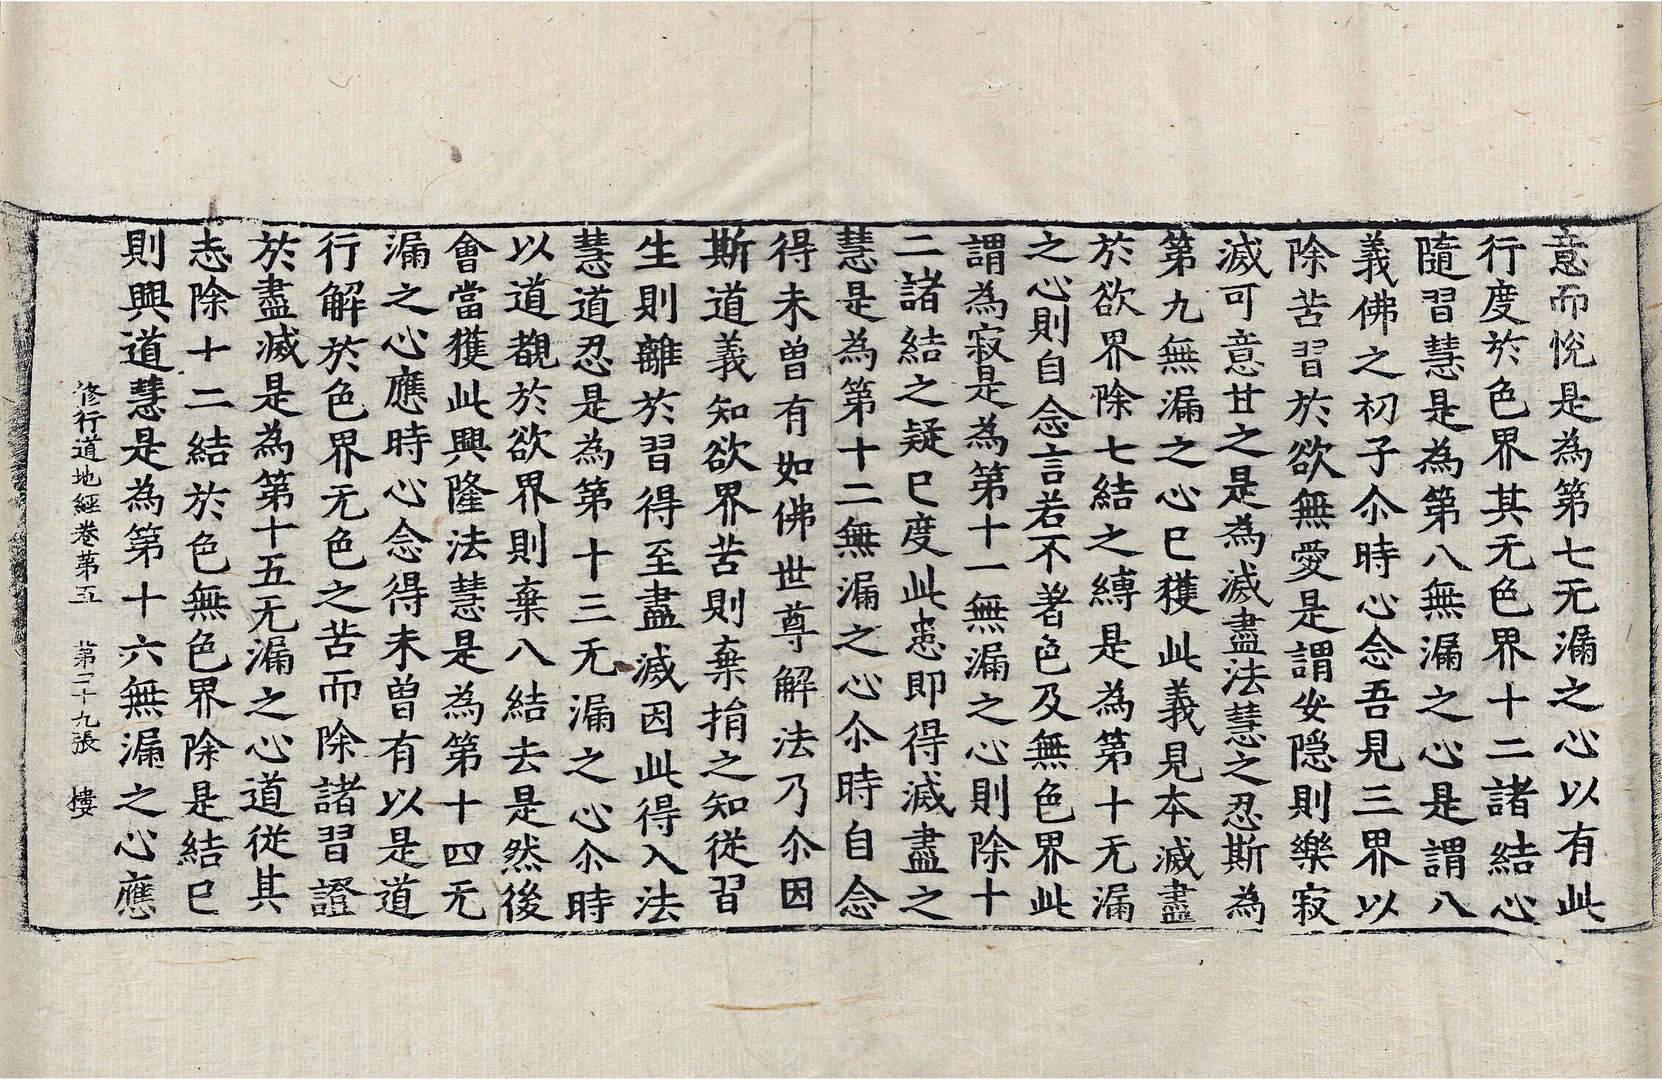 意而恱是為第七无漏之心以有此
行度於色界其无色界十二諸結心
隨習慧是為第八無漏之心是謂八
義佛之初子尒時心念吾見三界以
除苦習於欲無愛是謂安隱則樂寂
滅可意甘之是為滅盡法慧之忍斯為
第九無漏之心已獲此義見本滅盡
於欲界除七結之縛是為第十无漏
之心則自念言若不著色及無色界此
謂為寂是為第十一無漏之心則除十
二諸結之疑已度此患即得滅盡之
慧是為第十二無漏之心尒時自念
得未曾有如佛世尊解法乃尒因
斯道義知欲界苦則棄捐之知從習
生則離於習得至盡滅因此得入法
慧道忍是為第十三无漏之心尒時
以道覩於欲界則棄八結去是然後
會當獲此興隆法慧是為第十四无
漏之心應時心念得未曾有以是道
行解於色界无色之苦而除諸習證
於盡滅是為第十五无漏之心道從其
志除十二結於色無色界除是結已
則興道慧是為第十六無漏之心應
修行道地經卷苐五 苐二十九張 樓